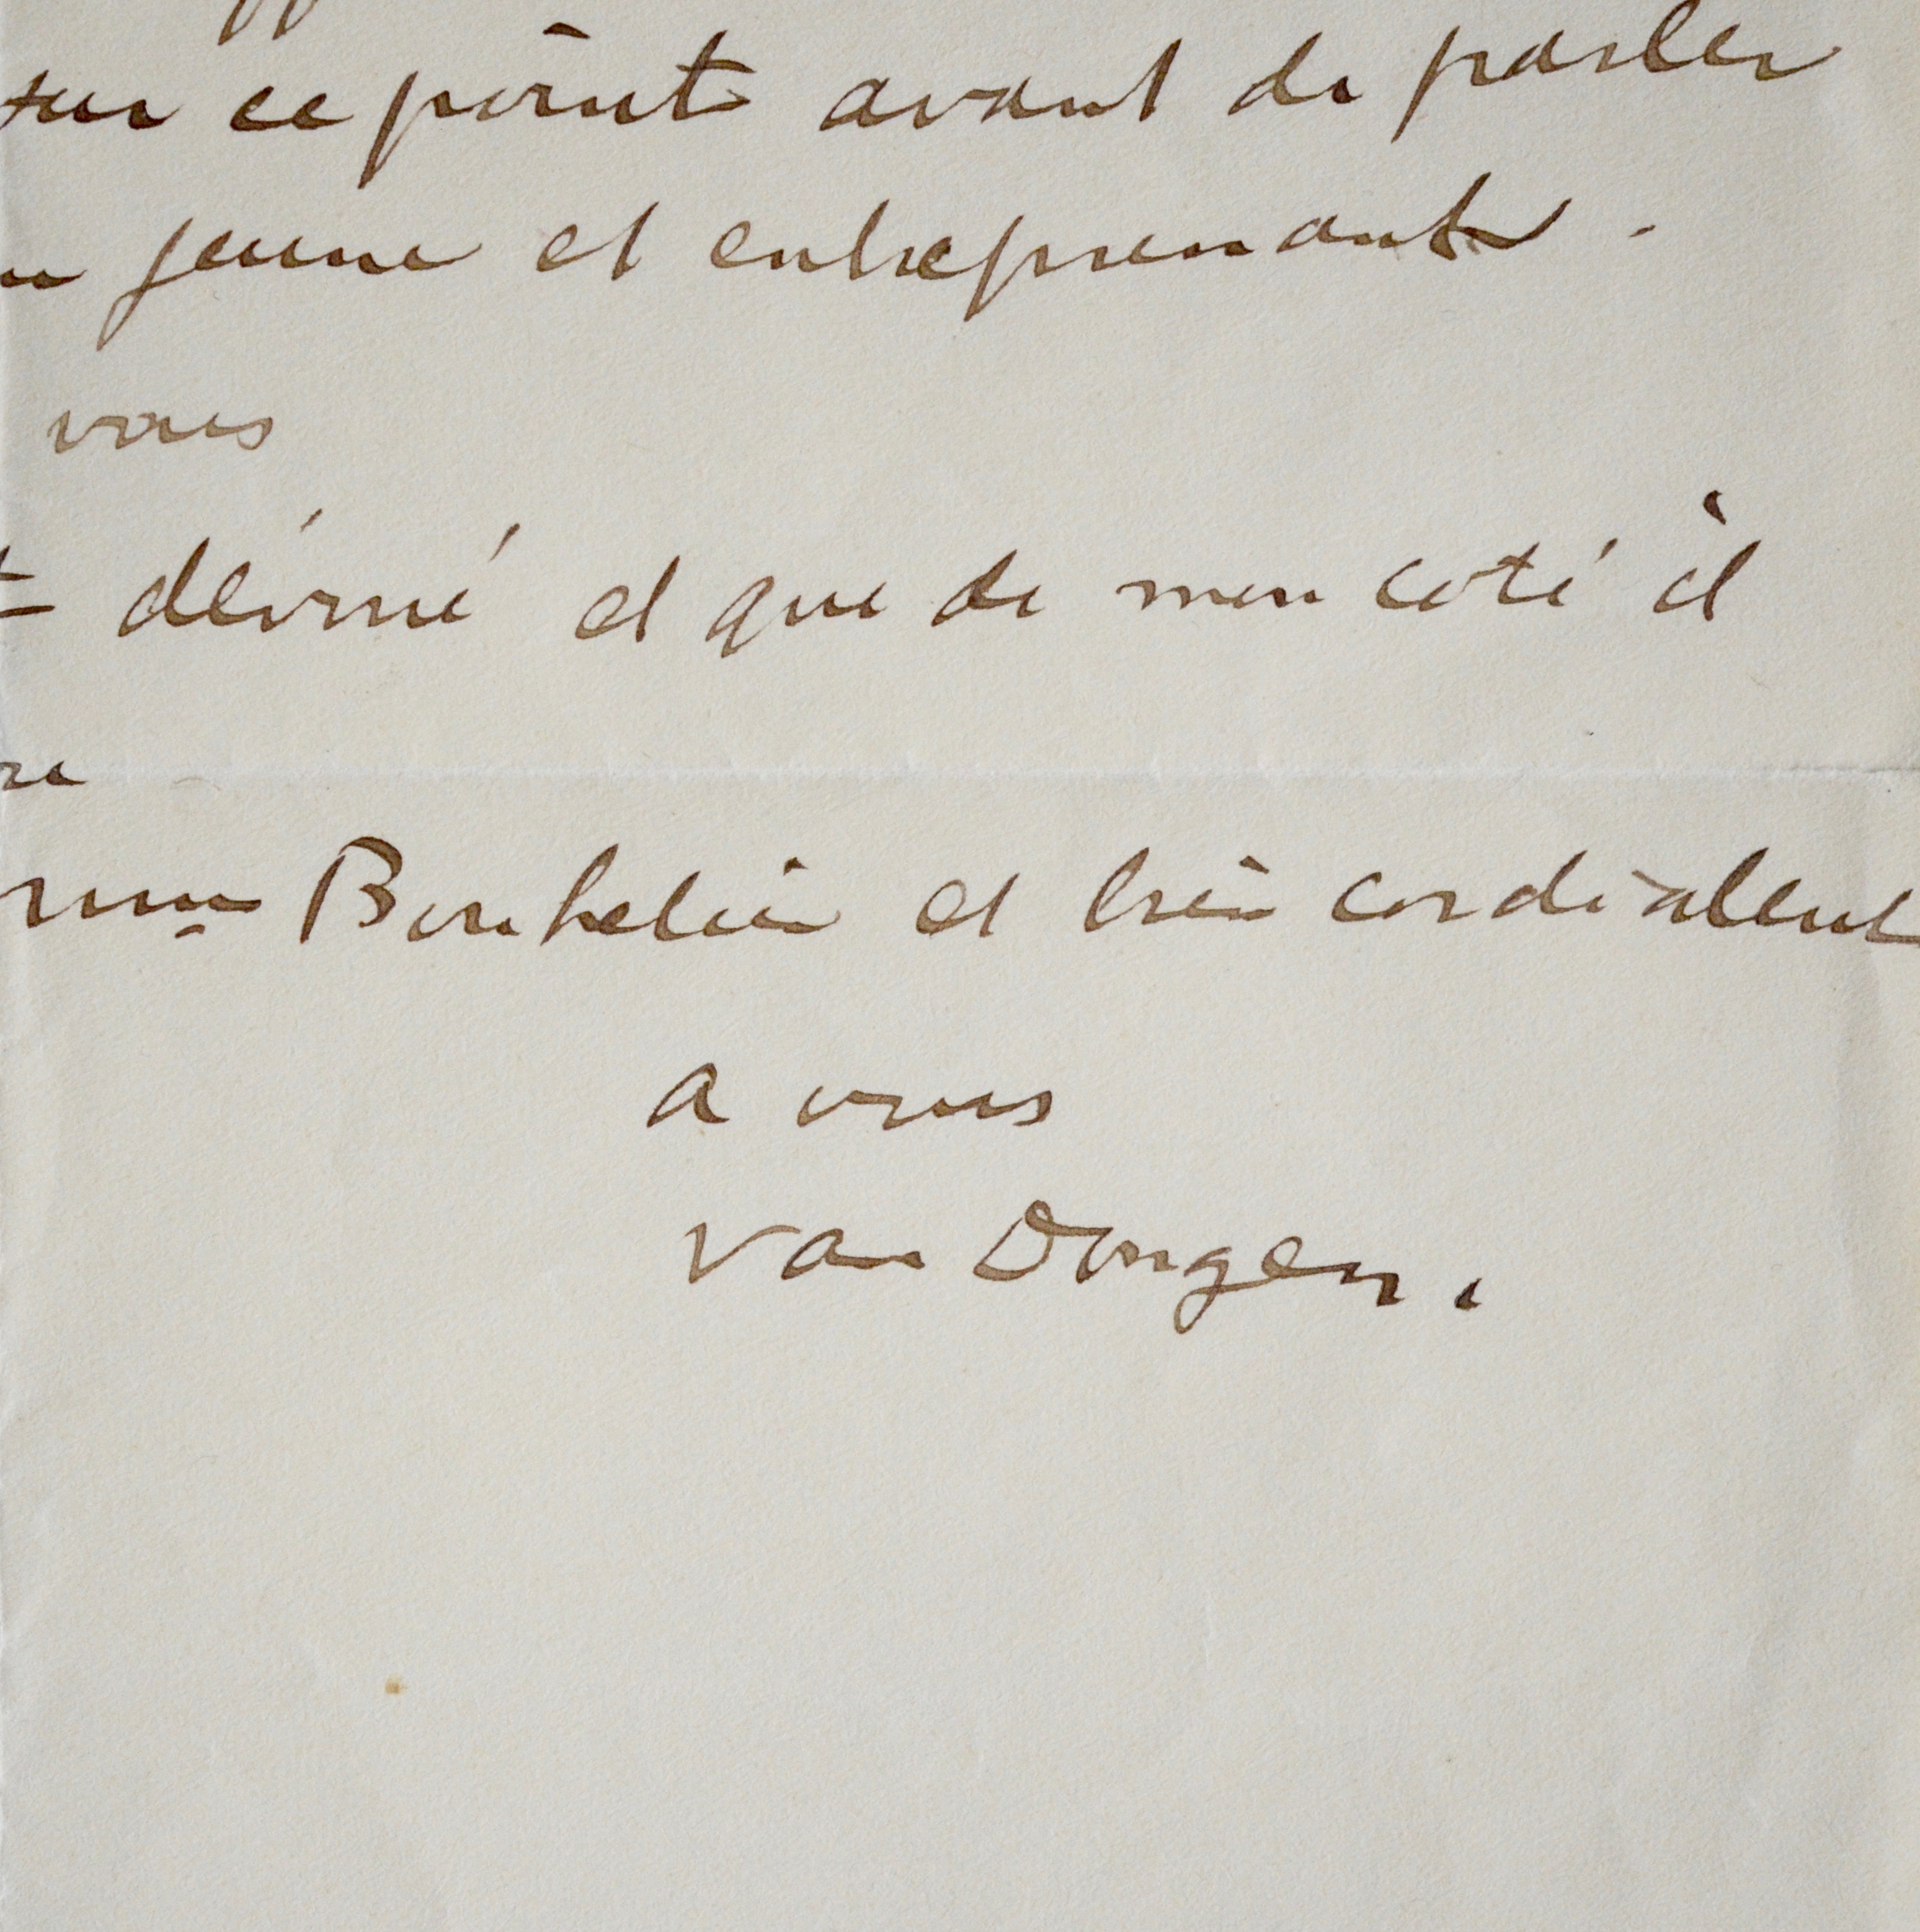 sur ce point avant de parler
jeune et entreprenant.
vous
dévoué et que de mon coté il
Bouhelier et bien cordialent
a vous
van Dongen.